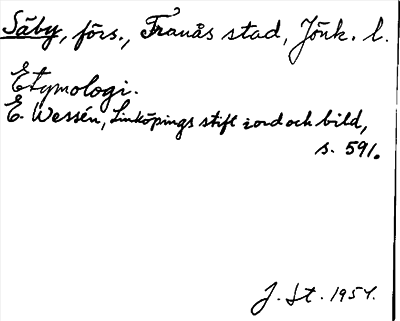 Säby, förs., Tranås stad, Jönk. l.
Etymologi.
E. Wessén, Linköpings stift i ord och bild,
s. 591.
J. St. 1954.